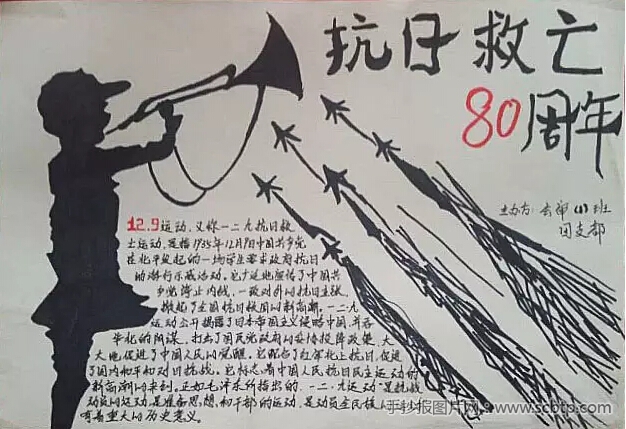 抗日救亡
80周年
主办方:会审(1)班
团支部
12.9运动,又称一二九抗日救
亡运动,是指1935年12月9日中国共产党
在北平发起的一场学生要求政府抗日
的游行示威活动。它广泛地宣传了中国共
产党停止内战,一致对外的抗日主张,
掀起了全国抗日救国的新高潮,一二九
运动公开揭露了日本帝国主义侵略中国,并吞
华北的阴谋,打击了国民党政府的妥协投降政策,大
大地促进了中国人民的觉醒。它配合了红军北上抗日,促进
了国内和平和对日抗战。它标志着中国人民抗日民主运动的
新高潮的来到。正如毛泽东所指出的,一.二.九运动"是抗战
动员的运动,是准备思想和干部的运动,是动员全民族的
有着重大的历史意义。
手抄报图片网:www.scbtp.com